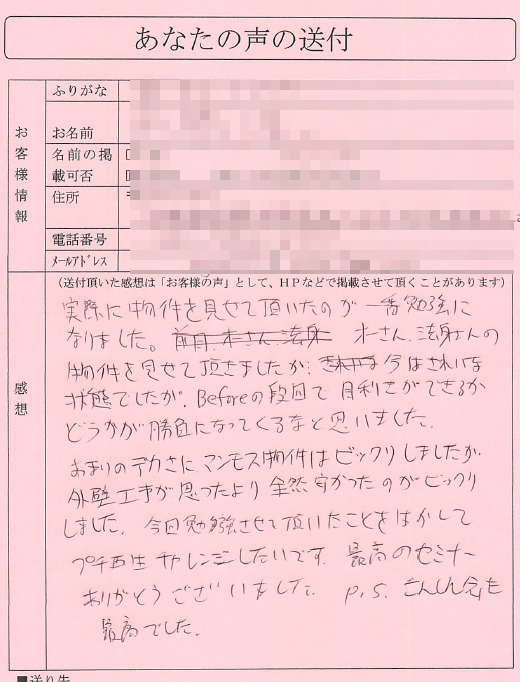 あなたの声の送付
お客様情報
ふりがな
お名前
名前の掲
載可否
住所
電話番号
メールアドレス
感想
（送付頂いた感想は「お客様の声」として、HPなどで掲載させて頂くことがあります）
実際に物件を見せて頂いたのが一番勉強に
なりました。 さん、 さんの
物件を見せて頂きましたが、 今はきれいな
状態でしたが、Beforeの段回で目利きができるか
どうかが勝負になってくるなと思いました。
あまりのデカさに、マンモス物件はビックリしましたが
外壁工事が思ったより全然安かったのがビックリ
しました。今回勉強させて頂いたことをいかして
プチ再生チャレンジしたいです。最高のセミナー
ありがとうございました。 P.S. こんしん会も
最高でした。
■送り先